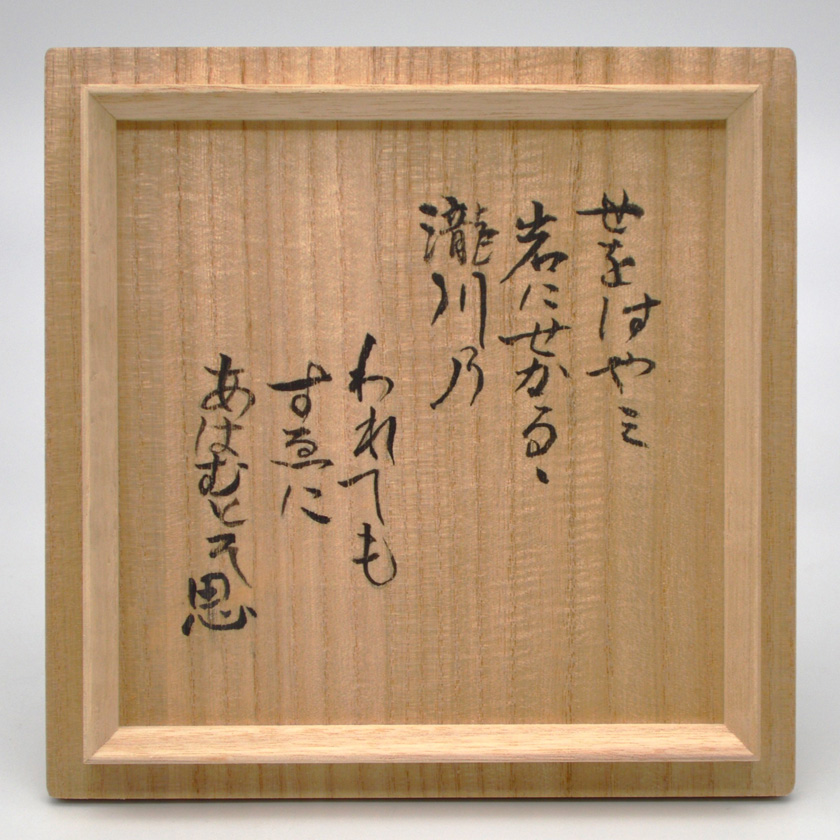 世をはやミ
岩にせかるゝ
瀧川乃
われても
すゑに
あはむとそ思